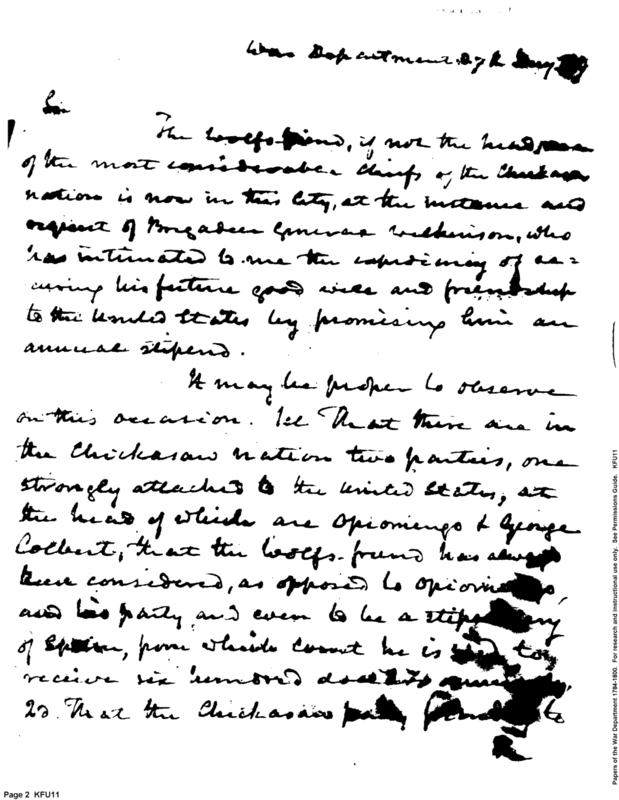 War Department 27th
Sir
The Wolfs friend, if not the head
of the most considerable Chiefs of the Chickasaw
nation is now in this City, at the instance and
request of Brigadier General Wilkinson, who
has intimated to me the expediency of se=
curing his future good will and friendship
to the United States by promising him an
annual stipend.
It may be proper to observe
on this occasion. 1st That there are in
the Chickasaw nation two parties, one
strongly attached to the United States, at
the head of which are Opiomingo & George
Colbert, that the Wolfs-friend has always
been considered, as opposed to Opiomingo,
and his party, and even to be a stipendiary
of Spain, from which Court he is said to
receive six hundred dollars annually.
2d. That the Chickasaw party to
Page 2 KFU11
Papers of the War Department 1784-1800. For research and instructional use only. See Permissions Guide. KFU11